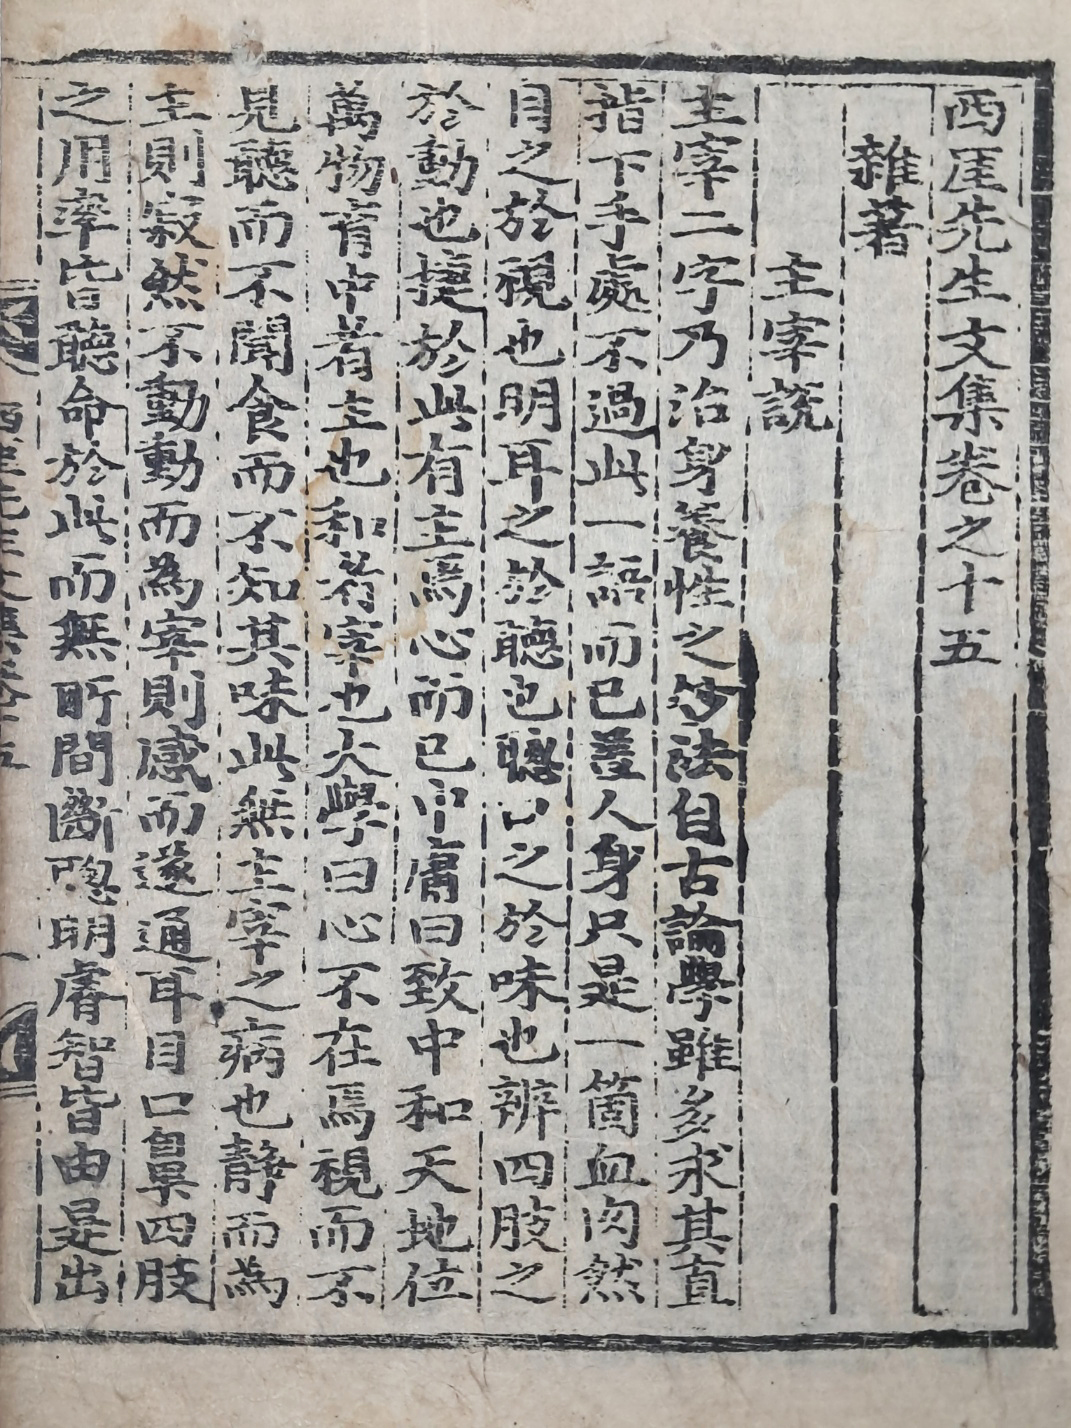 西厓先生文集卷之十五
雜著
主宰說
主宰二字乃治身養性之妙法自古論學雖多求其直
指下手處不過此一語而已蓋人身只是一箇血肉然
目之於視也明耳之於聽也聰口之於味也辨四肢之
於動也捷於此有主焉心而已中庸曰致中和天地位
萬物育中者主也和者宰也大學曰心不在焉視而不
見聽而不聞食而不知其味此無主宰之病也靜而為
主則寂然不動動而為宰則感而遂通耳目口鼻四肢
之用率皆聽命於此而無所間斷聰明睿智皆由是出